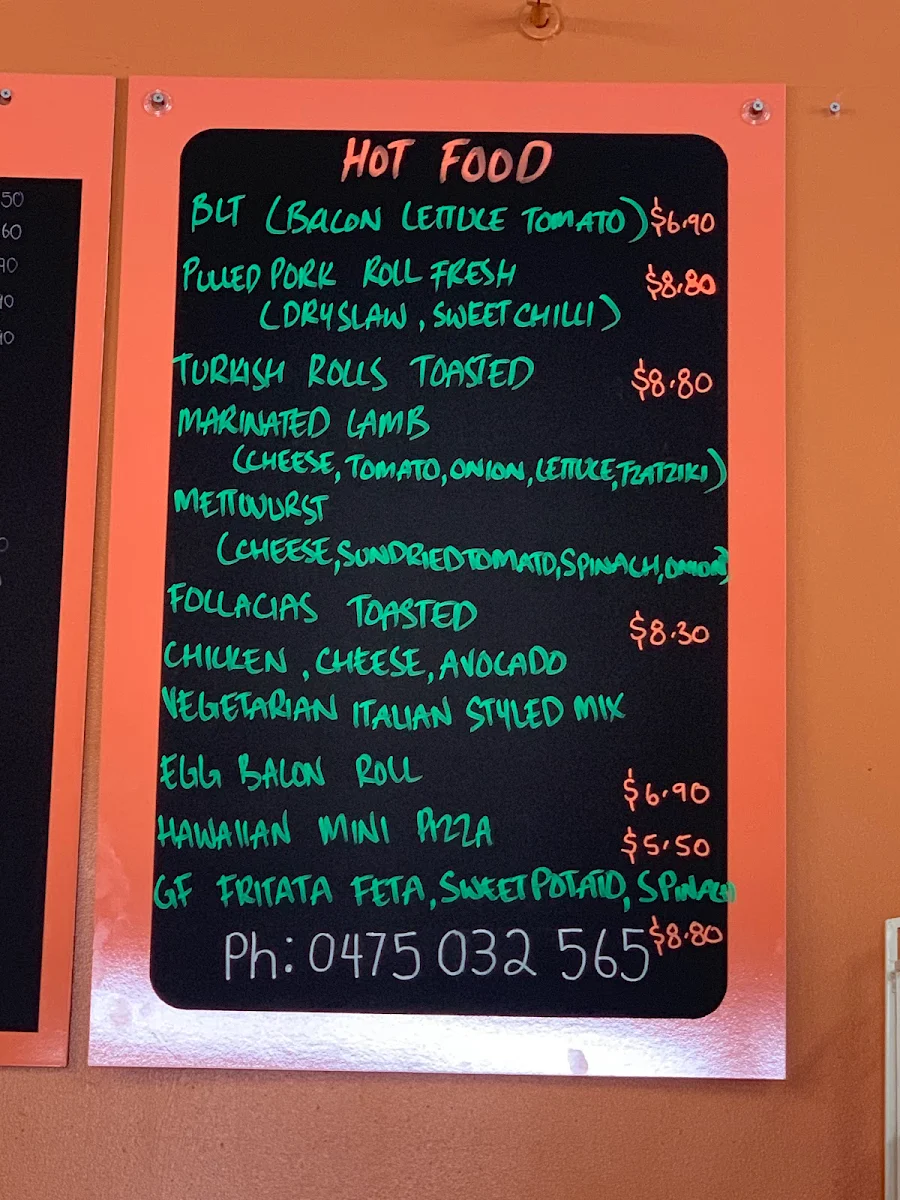 50
60
90
HOT FOOD
BLT (BACON LETTUCE TOMATO) $6.90
PULLED PORK ROLL FRESH $8.80
(DRYSLAW, SWEET CHILLI)
TURKISH ROLLS TOASTED $8.80
MARINATED LAMB
(CHEESE, TOMATO, ONION, LETTUCE, TZATZIKI)
METTWURST
(CHEESE, SUNDRIED TOMATO, SPINACH, ONION)
FOCCACIAS TOASTED $8.30
CHICKEN, CHEESE, AVOCADO
VEGETARIAN ITALIAN STYLED MIX
EGG BACON ROLL $6.90
HAWAIIAN MINI PIZZA $5.50
GF FRITATA FETA, SWEET POTATO, SPINACH
$8.80
Ph: 0475 032 565